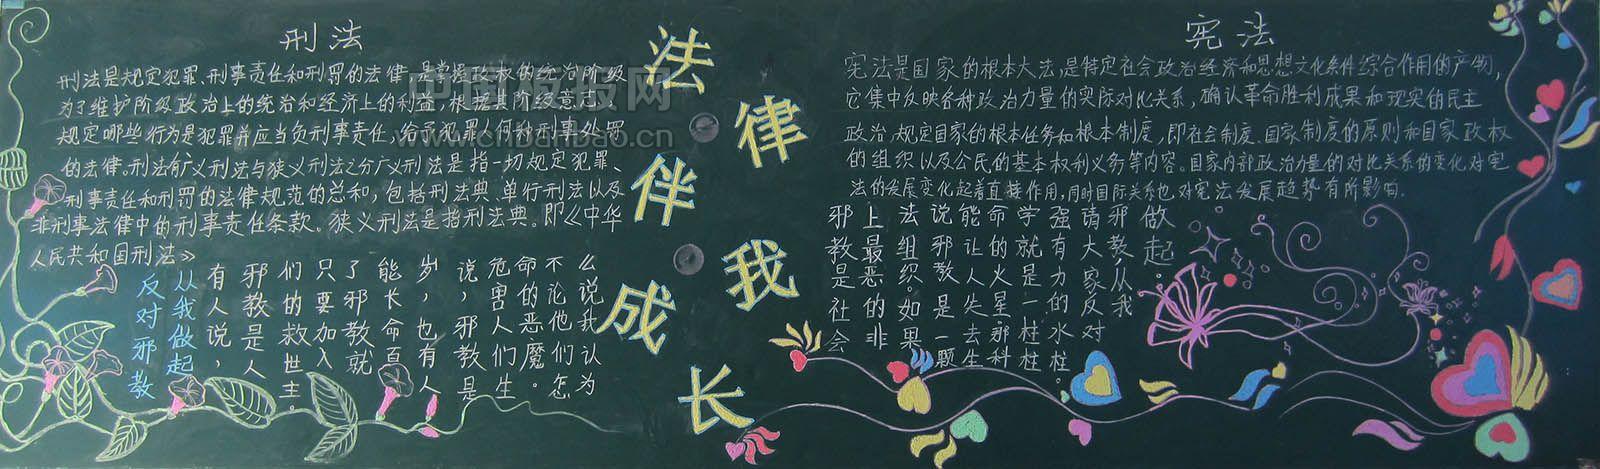 刑法
刑法是规定犯罪、刑事责任和刑罚的法律,是掌握政权的统治阶级
为了维护阶级政治上的统治和经济上的利益,根据其阶级意志,
规定哪些行为是犯罪并应当负刑事责任,给予犯罪人何种刑事处罚
的法律。刑法有广义刑法与狭义刑法之分广义刑法是指一切规定犯罪、
刑事责任和刑罚的法律规范的总和,包括刑法典、单行刑法以及
非刑事法律中的刑事责任条款。狭义刑法是指刑法典。即《中华
人民共和国刑法》
反对邪教
从我做起
有人说，
邪教是人
们的救世主。
只要加入
了邪教就
能长命百
岁，也有人
说，邪教是
危害人们生
命的恶魔。
不论他们怎
么说我认为
法律伴我成长
宪法
宪法是国家的根本大法,是特定社会政治经济和思想文化条件综合作用的产物,
它集中反映各种政治力量的实际对比关系,确认革命胜利成果和现实的民主
政治,规定国家的根本任务和根本制度,即社会制度、国家制度的原则和国家政权
的组织以及公民的基本权利义务等内容。国家内部政治力量的对比关系的变化对宪
法的发展变化起着直接作用,同时国际关系也对宪法发展趋势有所影响.
邪教是社会
上最恶的非
法组织如果
说邪教是一颗
能让人失去生
命的火星那科
学就是一柱
强有力的水柱。
请大家反对
邪教从我
做起。
中国板报网
cnbanbao.cn